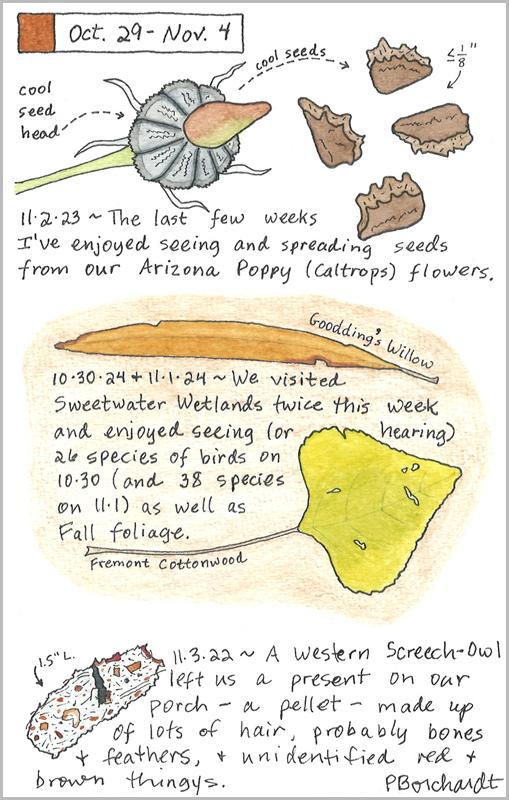 Oct. 29 - Nov. 4
cool seeds
≤ 1/8"
cool
seed
head
11.2.23 ~ The last few weeks
I've enjoyed seeing and spreading seeds
from our Arizona Poppy (Caltrops) flowers.
Goodding's Willow
10.30.24 + 11.1.24 ~ We visited
Sweetwater Wetlands twice this week
and enjoyed seeing (or hearing)
26 species of birds on
10.30 (and 38 species
on 11.1) as well as
Fall foliage.
Fremont Cottonwood
1.5" L.
11.3.22 ~ A Western Screech-Owl
left us a present on our
porch - a pellet - made up
of lots of hair, probably bones
+ feathers, + unidentified red +
brown thingys.
PBorchardt